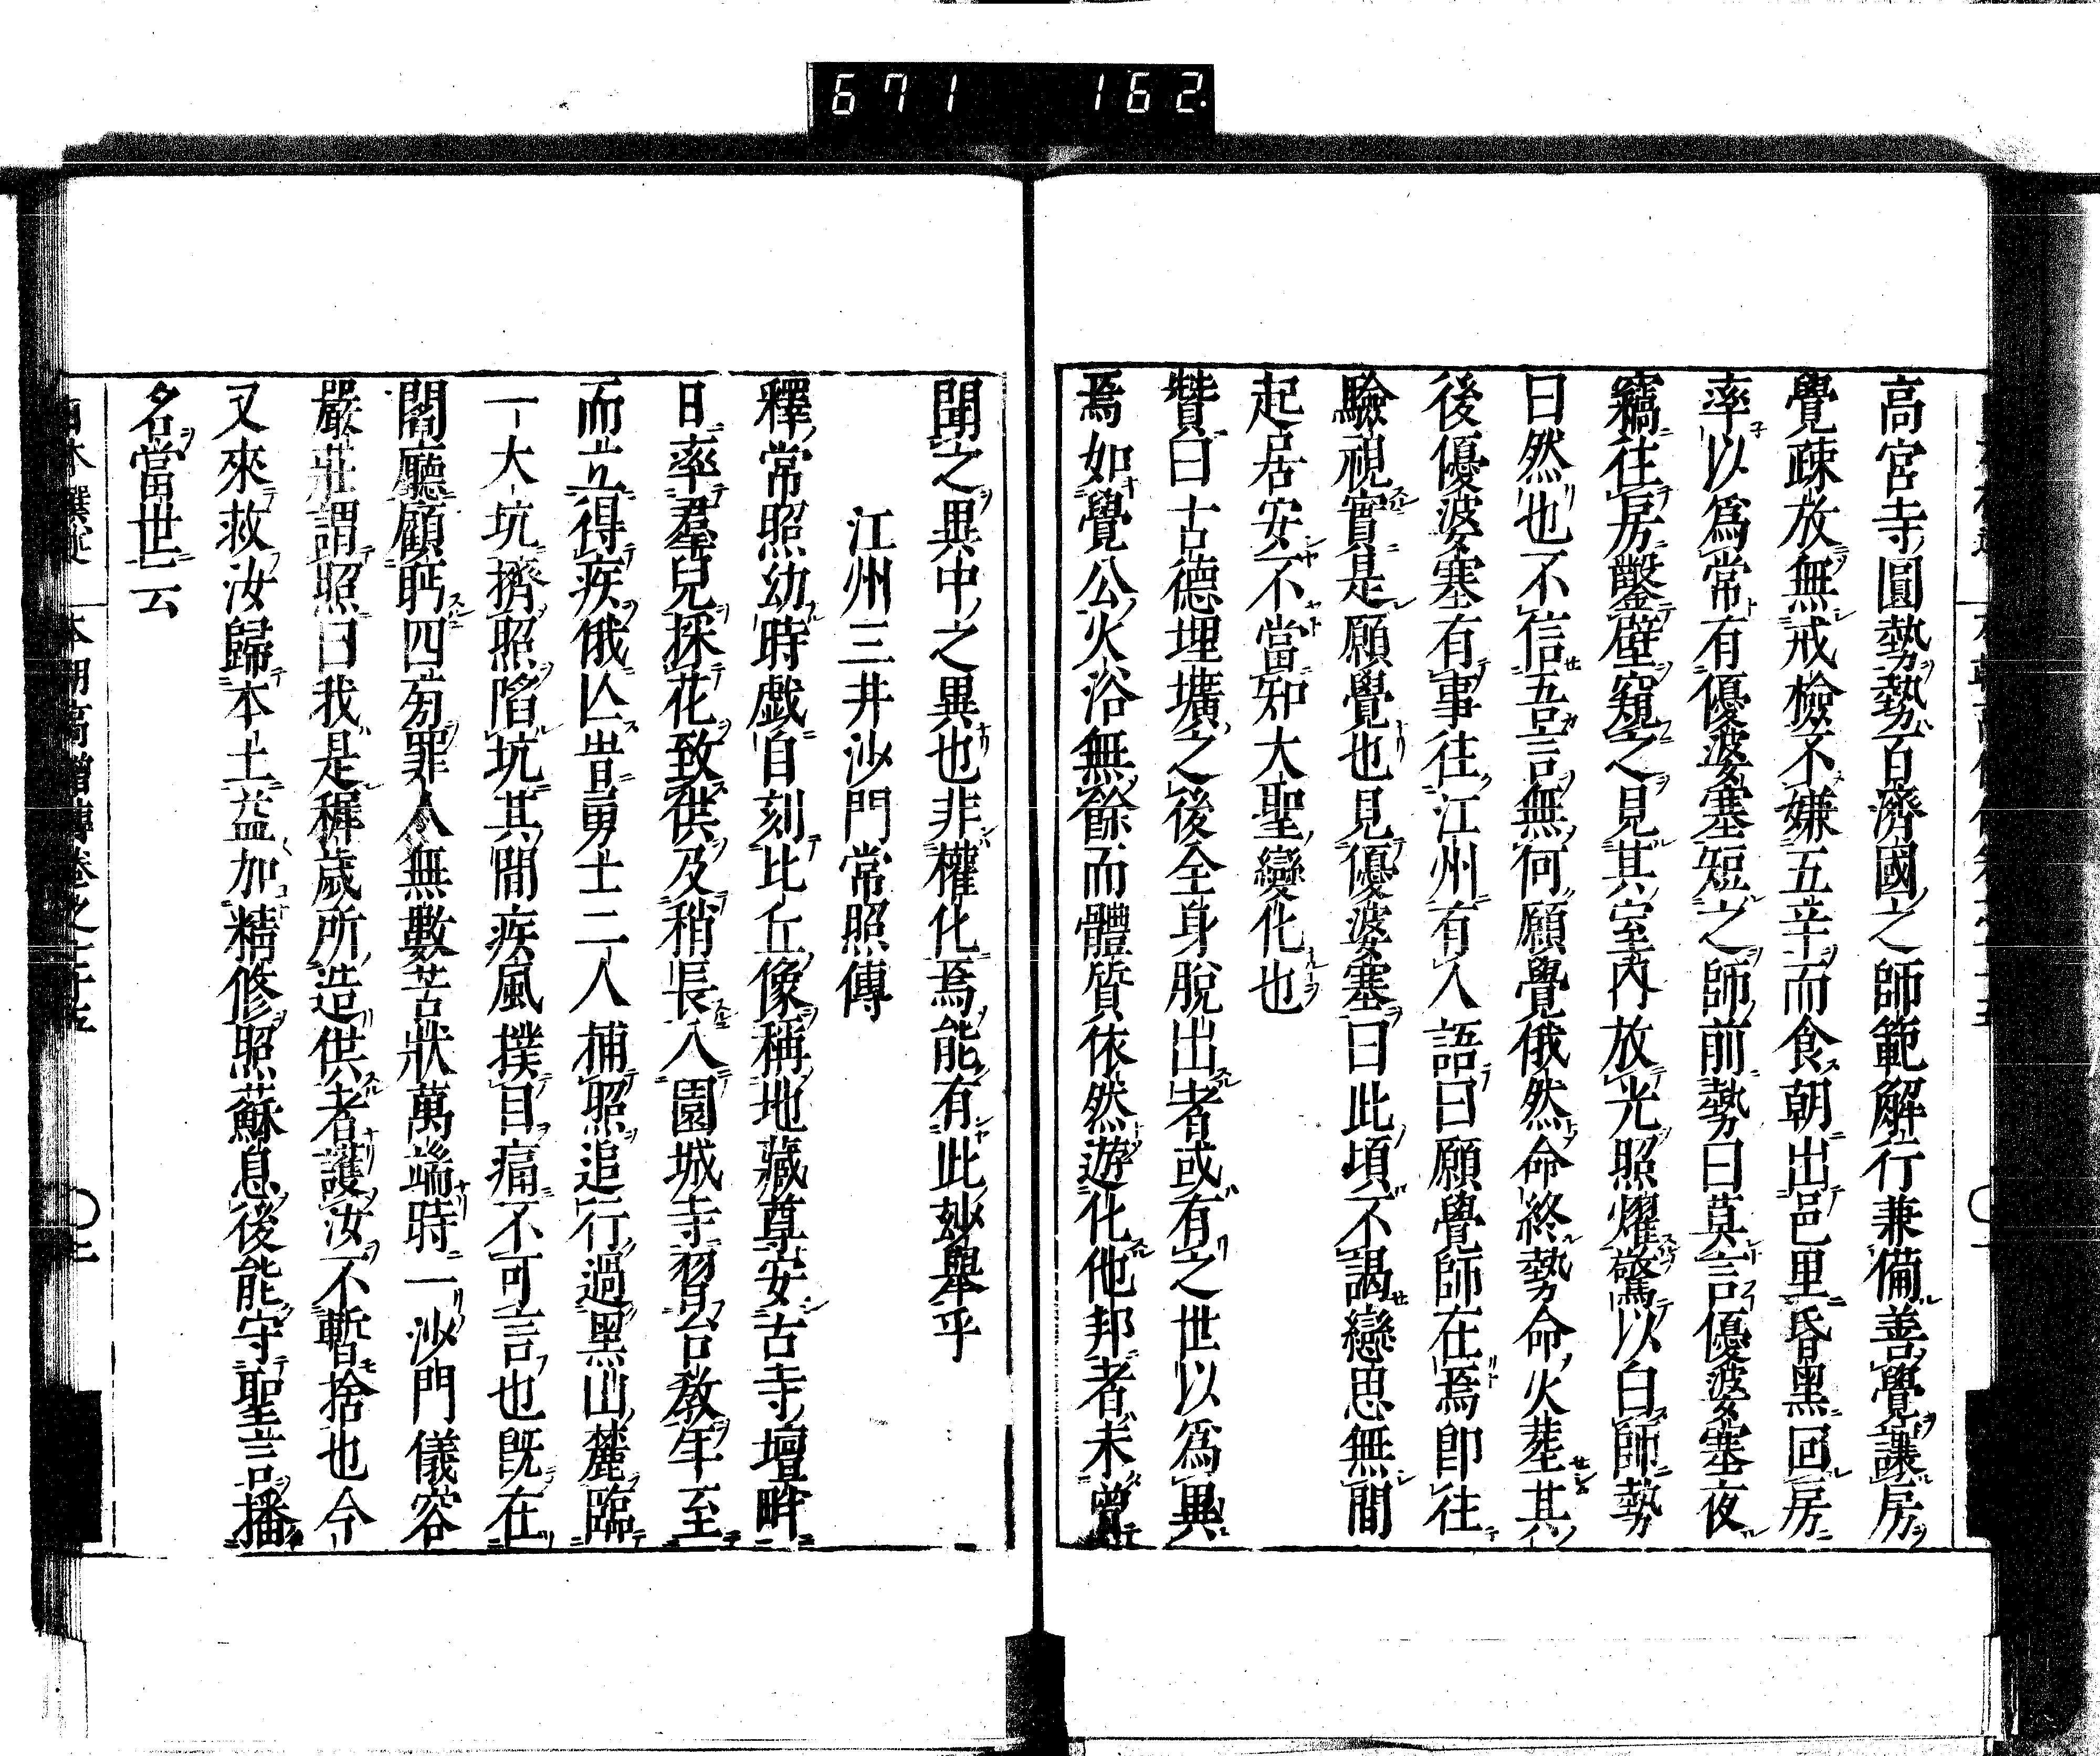 671 162
高宮寺圓勢勢百濟國之師範解行兼備善覺讓房
覺疎放無戒檢不嫌五辛而食朝出邑里昏黑回房
率以爲常有優婆塞短之師前勢曰莫言優婆塞夜
竊往房鑿壁窺之見其室內放光照耀驚以白師勢
曰然也不信吾言無何願覺俄然命終勢命火葬其
後優婆塞有事往江州有人語曰願覺師在焉即往
驗視實是願覺也見優婆塞曰此頃不謁戀思無間
起居安不當知大聖變化也
贊曰古德埋壙之後全身脫出者或有之世以爲異
焉如覺公火浴無餘而體質依然遊化他邦者未曾
聞之異中之異也非權化焉能有此玅舉乎
江州三井沙門常照傳
釋常照幼時戲自刻比丘像稱地藏尊安古寺壇畔
日率羣兒採花致供及稍長入園城寺習台教年至
而立得疾俄亾昔勇士二人捕照追行過黑山麓臨
一大坑擠照陷坑其間疾風撲目痛不可言也既在
閻廳顧眄四旁罪人無數苦狀萬端時一沙門儀容
嚴莊謂照曰我是穉歲所造供者護汝不暫捨也今
又來救汝歸本土益加精修照蘇息後能守聖言播
名當世云
本朝高僧傳卷之